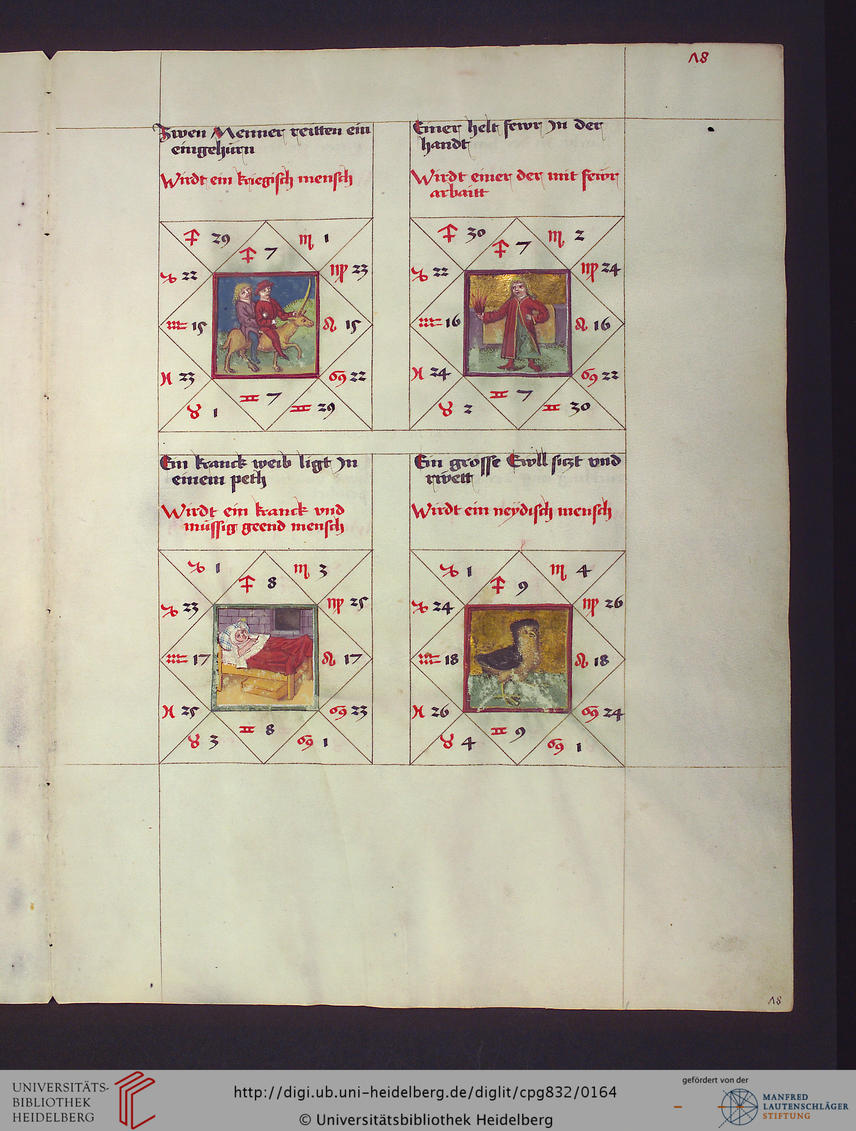 Λ8
Zwen Menner reitten ein
eingehürn
Wirdt ein kriegisch mensch
♐ 29
♐ 7
♏ 1
♑ 22
♍ 23
♒ 15
♌ 15
♓ 23
♋ 22
♉ 1
♊ 7
♊ 29
Einer helt fewr Jn der
handt
Wirdt einer der mit fewr
arbaitt
♐ 30
♐ 7
♏ 2
♑ 22
♍ 24
♒ 16
♌ 16
♓ 24
♋ 22
♉ 2
♊ 7
♊ 30
Ein kranck weib ligt Jn
einem peth
Wirdt ein kranck vnd
müssig geend mensch
♑ 1
♐ 8
♏ 3
♑ 23
♍ 25
♒ 17
♌ 17
♓ 25
♋ 23
♉ 3
♊ 8
♋ 1
Ein grosse Ewll sitzt vnd
rwett
Wirdt ein neydisch mensch
♑ 1
♐ 9
♏ 4
♑ 24
♍ 26
♒ 18
♌ 18
♓ 26
♋ 24
♉ 4
♊ 9
♋ 1
Λ8
UNIVERSITÄTS-
BIBLIOTHEK
HEIDELBERG
http://digi.ub.uni-heidelberg.de/diglit/cpg832/0164
© Universitätsbibliothek Heidelberg
gefördert von der
MANFRED
LAUTENSCHLÄGER
STIFTUNG